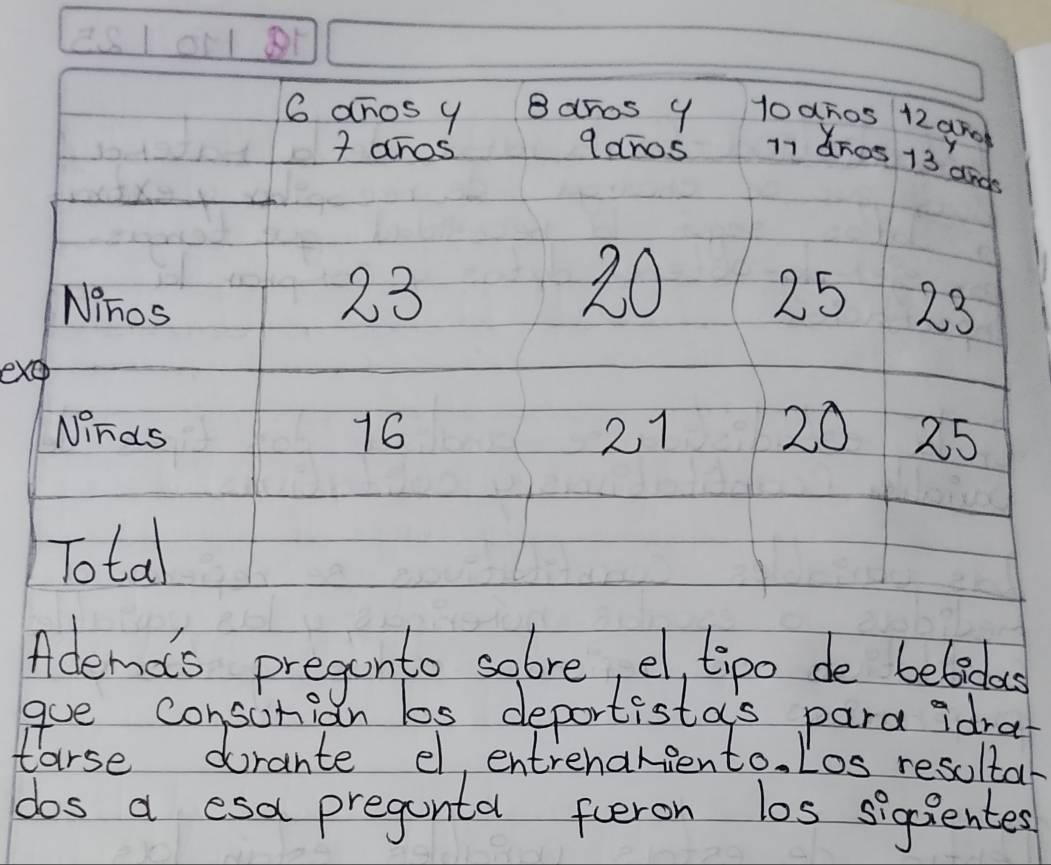 6 años y 8 años y 10 años 12 años
7 años 9 años y 11 años y 13 años
Niños 23 20 25 23
Niñas 16 21 20 25
Total
Además pregunto sobre, el, tipo de bebidas
que consumian los deportistas para idra-
tarse durante el, entrenamiento. Los resulta-
dos a esa pregunta fueron los siguientes